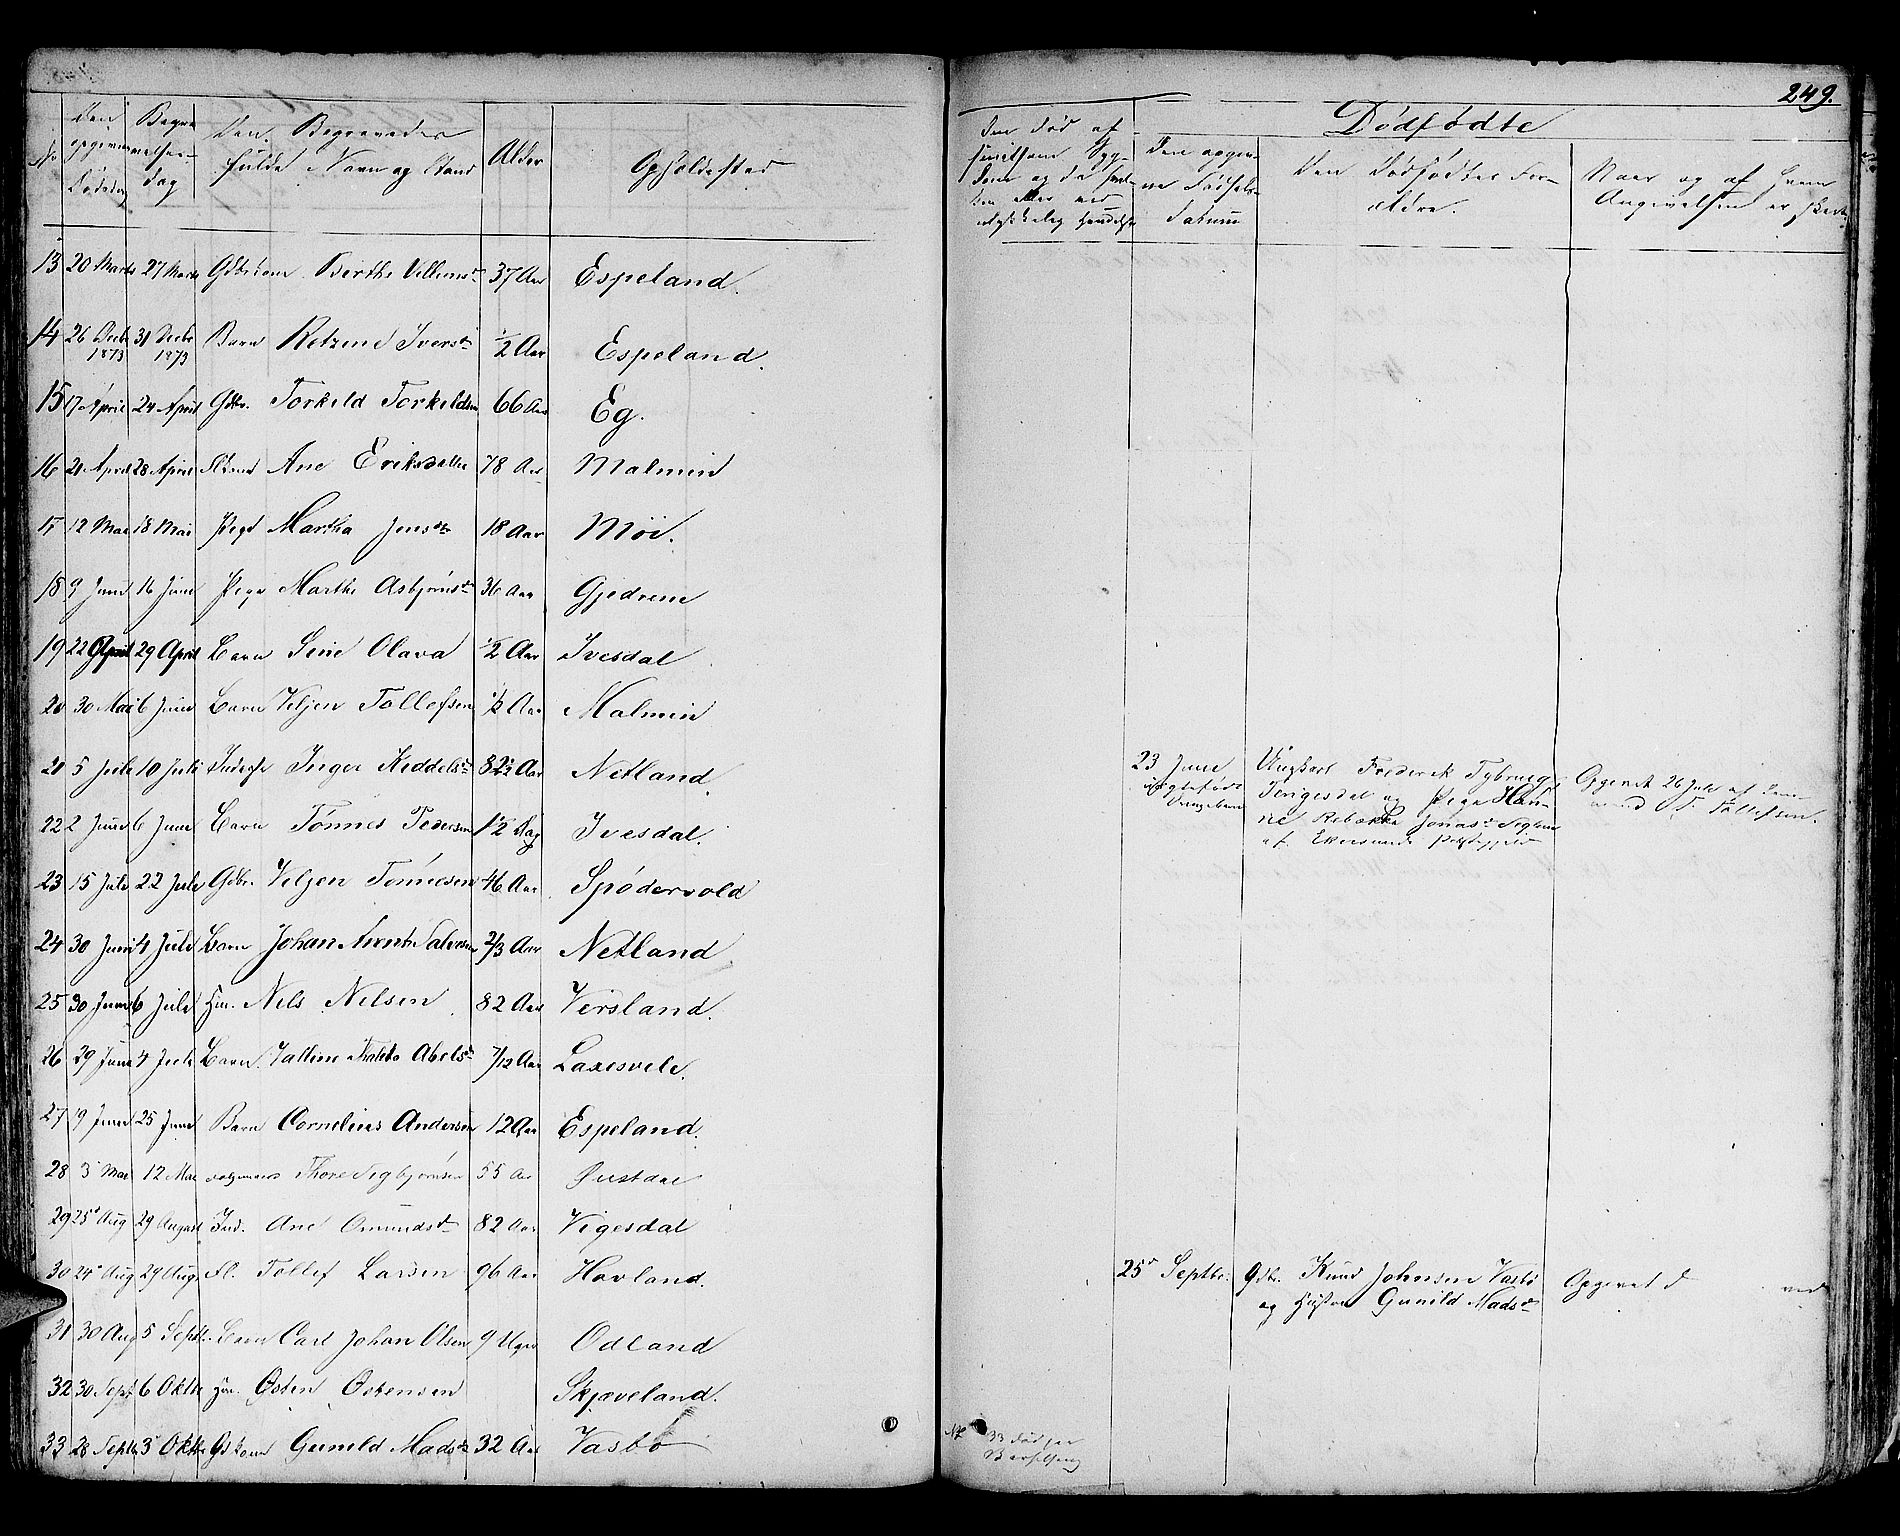 249.
Den opgivne Dødsdag
Begravelses-dag
Den Begravedes fulde Navn og Stand
Alder
Opholdssted
13 20 Marts 27 Marts Gdbrkone Berthe Villumsd 37 Aar Espeland.
14 26 Decb 1873 31 Decbr 1873 Barn Iversd 1/2 Aar Espeland.
15 17 April 24 April Gdbr. Torkild Torkeldsen 66 Aar Eg.
16 21 April 28 April Ane Eriksdatter 78 Aar Malmin
17 12 Mai 18 Mai Pige Martha Jensdtr 18 Aar Möi.
18 9 Juni 16 Juni Pige Marthe Asbjørnsd 36 Aar Gjedrem
19 22 April 29 April Barn Sine Olava 1/2 Aar Ivesdal
20 30 Mai 6 Juni Barn Veljen Tollefsen 1/2 Aar Malmin
21 5 Juli 10 Juli Inderste Inger Kieddelsd Aar Netland.
22 2 Juni 6 Juni Barn Tønnes Pedersen Dag Ivesdal.
23 15 Juli 22 Juli Gdbr. Veljen Tønnesen 46 Aar Spødervold
24 30 Juni 4 Juli Barn Johan Salvesen 2/3 Aar Netland
25 30 Juni 6 Juli Nels Nelsen 82 Aar Versland.
26 29 Juni 4 Juli Barn Abelsd 7/12 Aar Laxesvele.
27 19 Juni 25 Juni Barn Cornelius Andersen 12 Aar Espeland.
28 3 Mai 12 Mai Thore Sigbjørnsen 55 Aar Øustdal
29 25 Aug 29 August Ind. Ane Omundsd 82 Aar Vigesdal
30 24 Aug 29 Aug. Fl. Tollef Larsen 96 Aar Hovland.
31 30 Aug 5 Septb. Barn Carl Johan Olsen 9 Uger Odland
32 30 Sept 6 Oktbr Østen Østensen Skjæveland.
33 28 Septb 3 Oktbr Gdkone Gunild Madsd 32 Aar Vasbø
Den Død af
Dødfødte
Den opgivne Fødsels-Datum
Den Dødfødtes Forældre.
Naar og af hvem
Angivelsen er skeet
23 Juni
Ungkarl Frederik
og Pige Han-
ne Rebekka Jonasd
af Ekersunds
Opgivet 26 Juli af
T. Tollefsen.
25 Septbr. Gdbr. Knud Johnsen Vasbø
og Hustru Gunild Madsd
Opgivet d ved
33 død paa
Barselseng